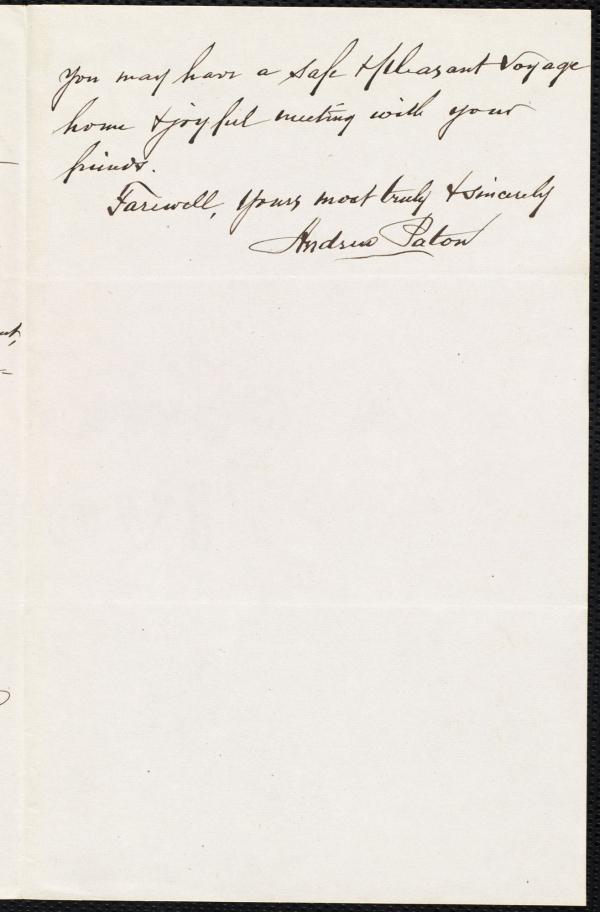 you may have a safe & pleasant voyage
home & joyful meeting with your
friends.
Farewell, yours most truly & sincerely
Andrew Paton